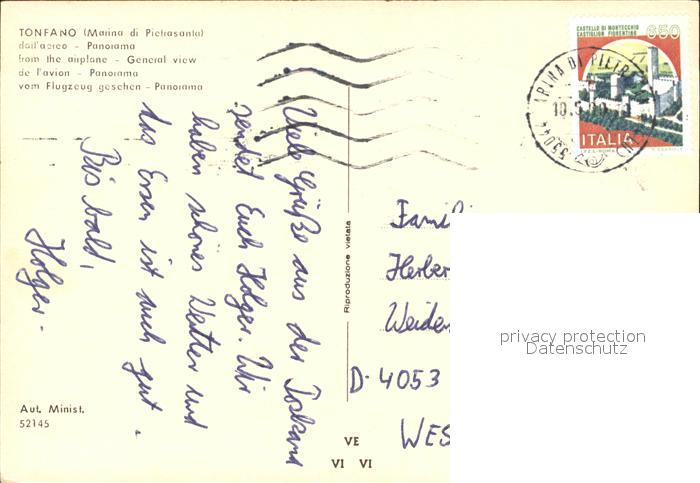 TONFANO (Marina di Pietrasanta)
dall'aereo - Panorama
from the airplane - General view
de l'avion - Panorama
vom Flugzeug gesehen - Panorama
Viele Grüße aus der Toskana
sendet Euch Holger. Wir
haben schönes Wetter und
das Essen ist auch gut.
Bis bald,
Holger.
Aut. Minist.
52145
Riproduzione vietata
VE
VI VI
CASTELLO DI MONTECCHIO
CASTIGLION FIORENTINO
650
ITALIA
ARINA DI PIETR
10.5.
55044
Famil
Herber
Weiden
D-4053
WES
privacy protection
Datenschutz